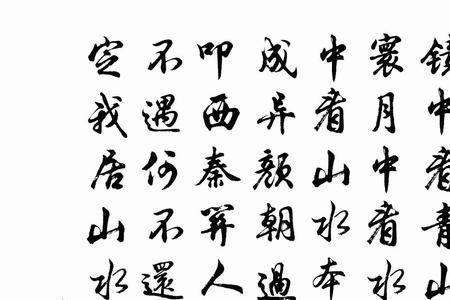 中看青山
寰月中看水
中看山水本
成异顏朝過
叩西秦人
不遇何不還
定我居山水